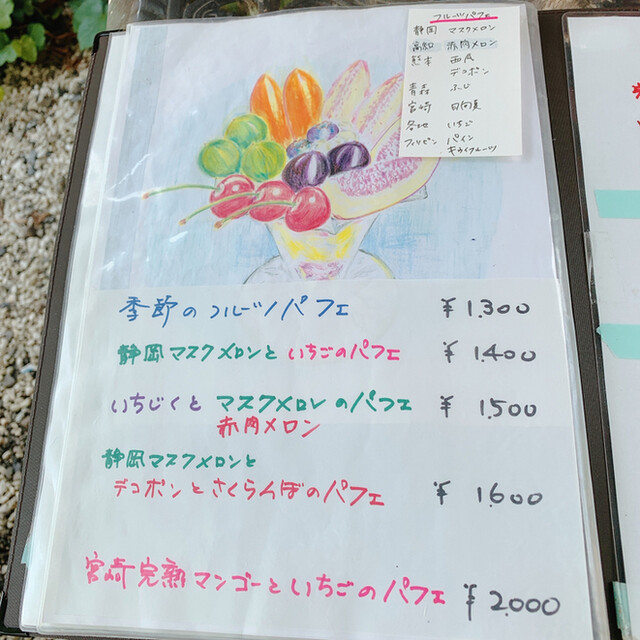 フルーツパフェ
静岡 マスクメロン
高知 赤肉メロン
熊本 西瓜
デコポン
青森 ふじ
宮崎 日向夏
各地 いちご
フィリピン パイン
キウイフルーツ
季節のフルーツパフェ ¥1.300
静岡マスクメロンといちごのパフェ ¥1.400
いちじくとマスクメロンのパフェ ¥1.500
赤肉メロン
静岡マスクメロンと
デコポンとさくらんぼのパフェ ¥1.600
宮崎完熟マンゴーといちごのパフェ ¥2.000